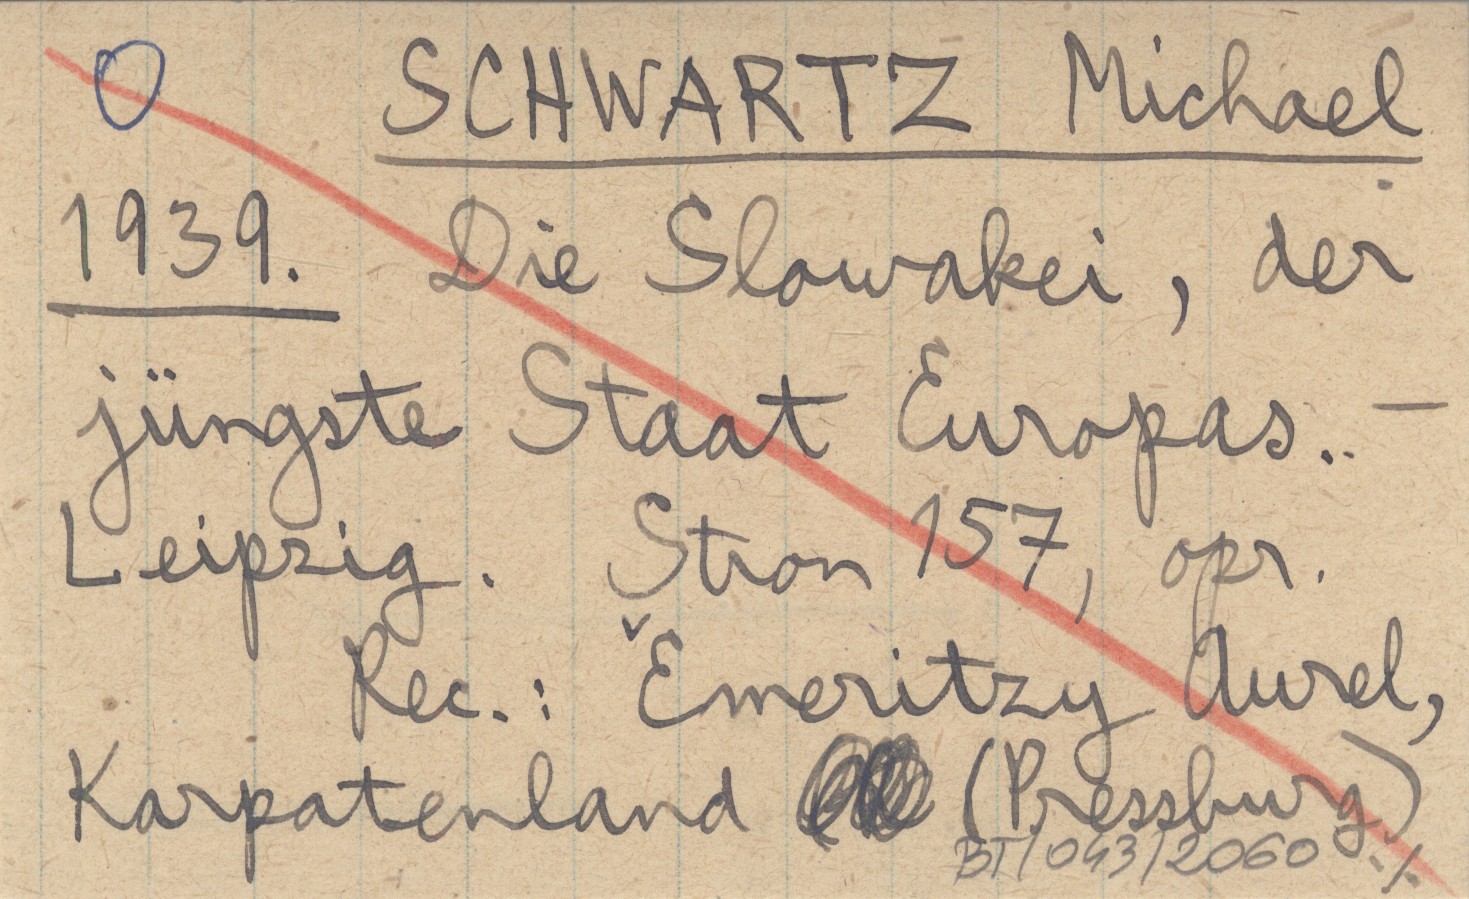 O SCHWARTZ Michael
1939. Die Slowakei, der
jüngste Staat Europas.. —
Leipzig. Stron 157, opr.
Rec.: Emeritzy Aurel,
Karpatenland (Pressburg)
BT/043/2060 ·/.